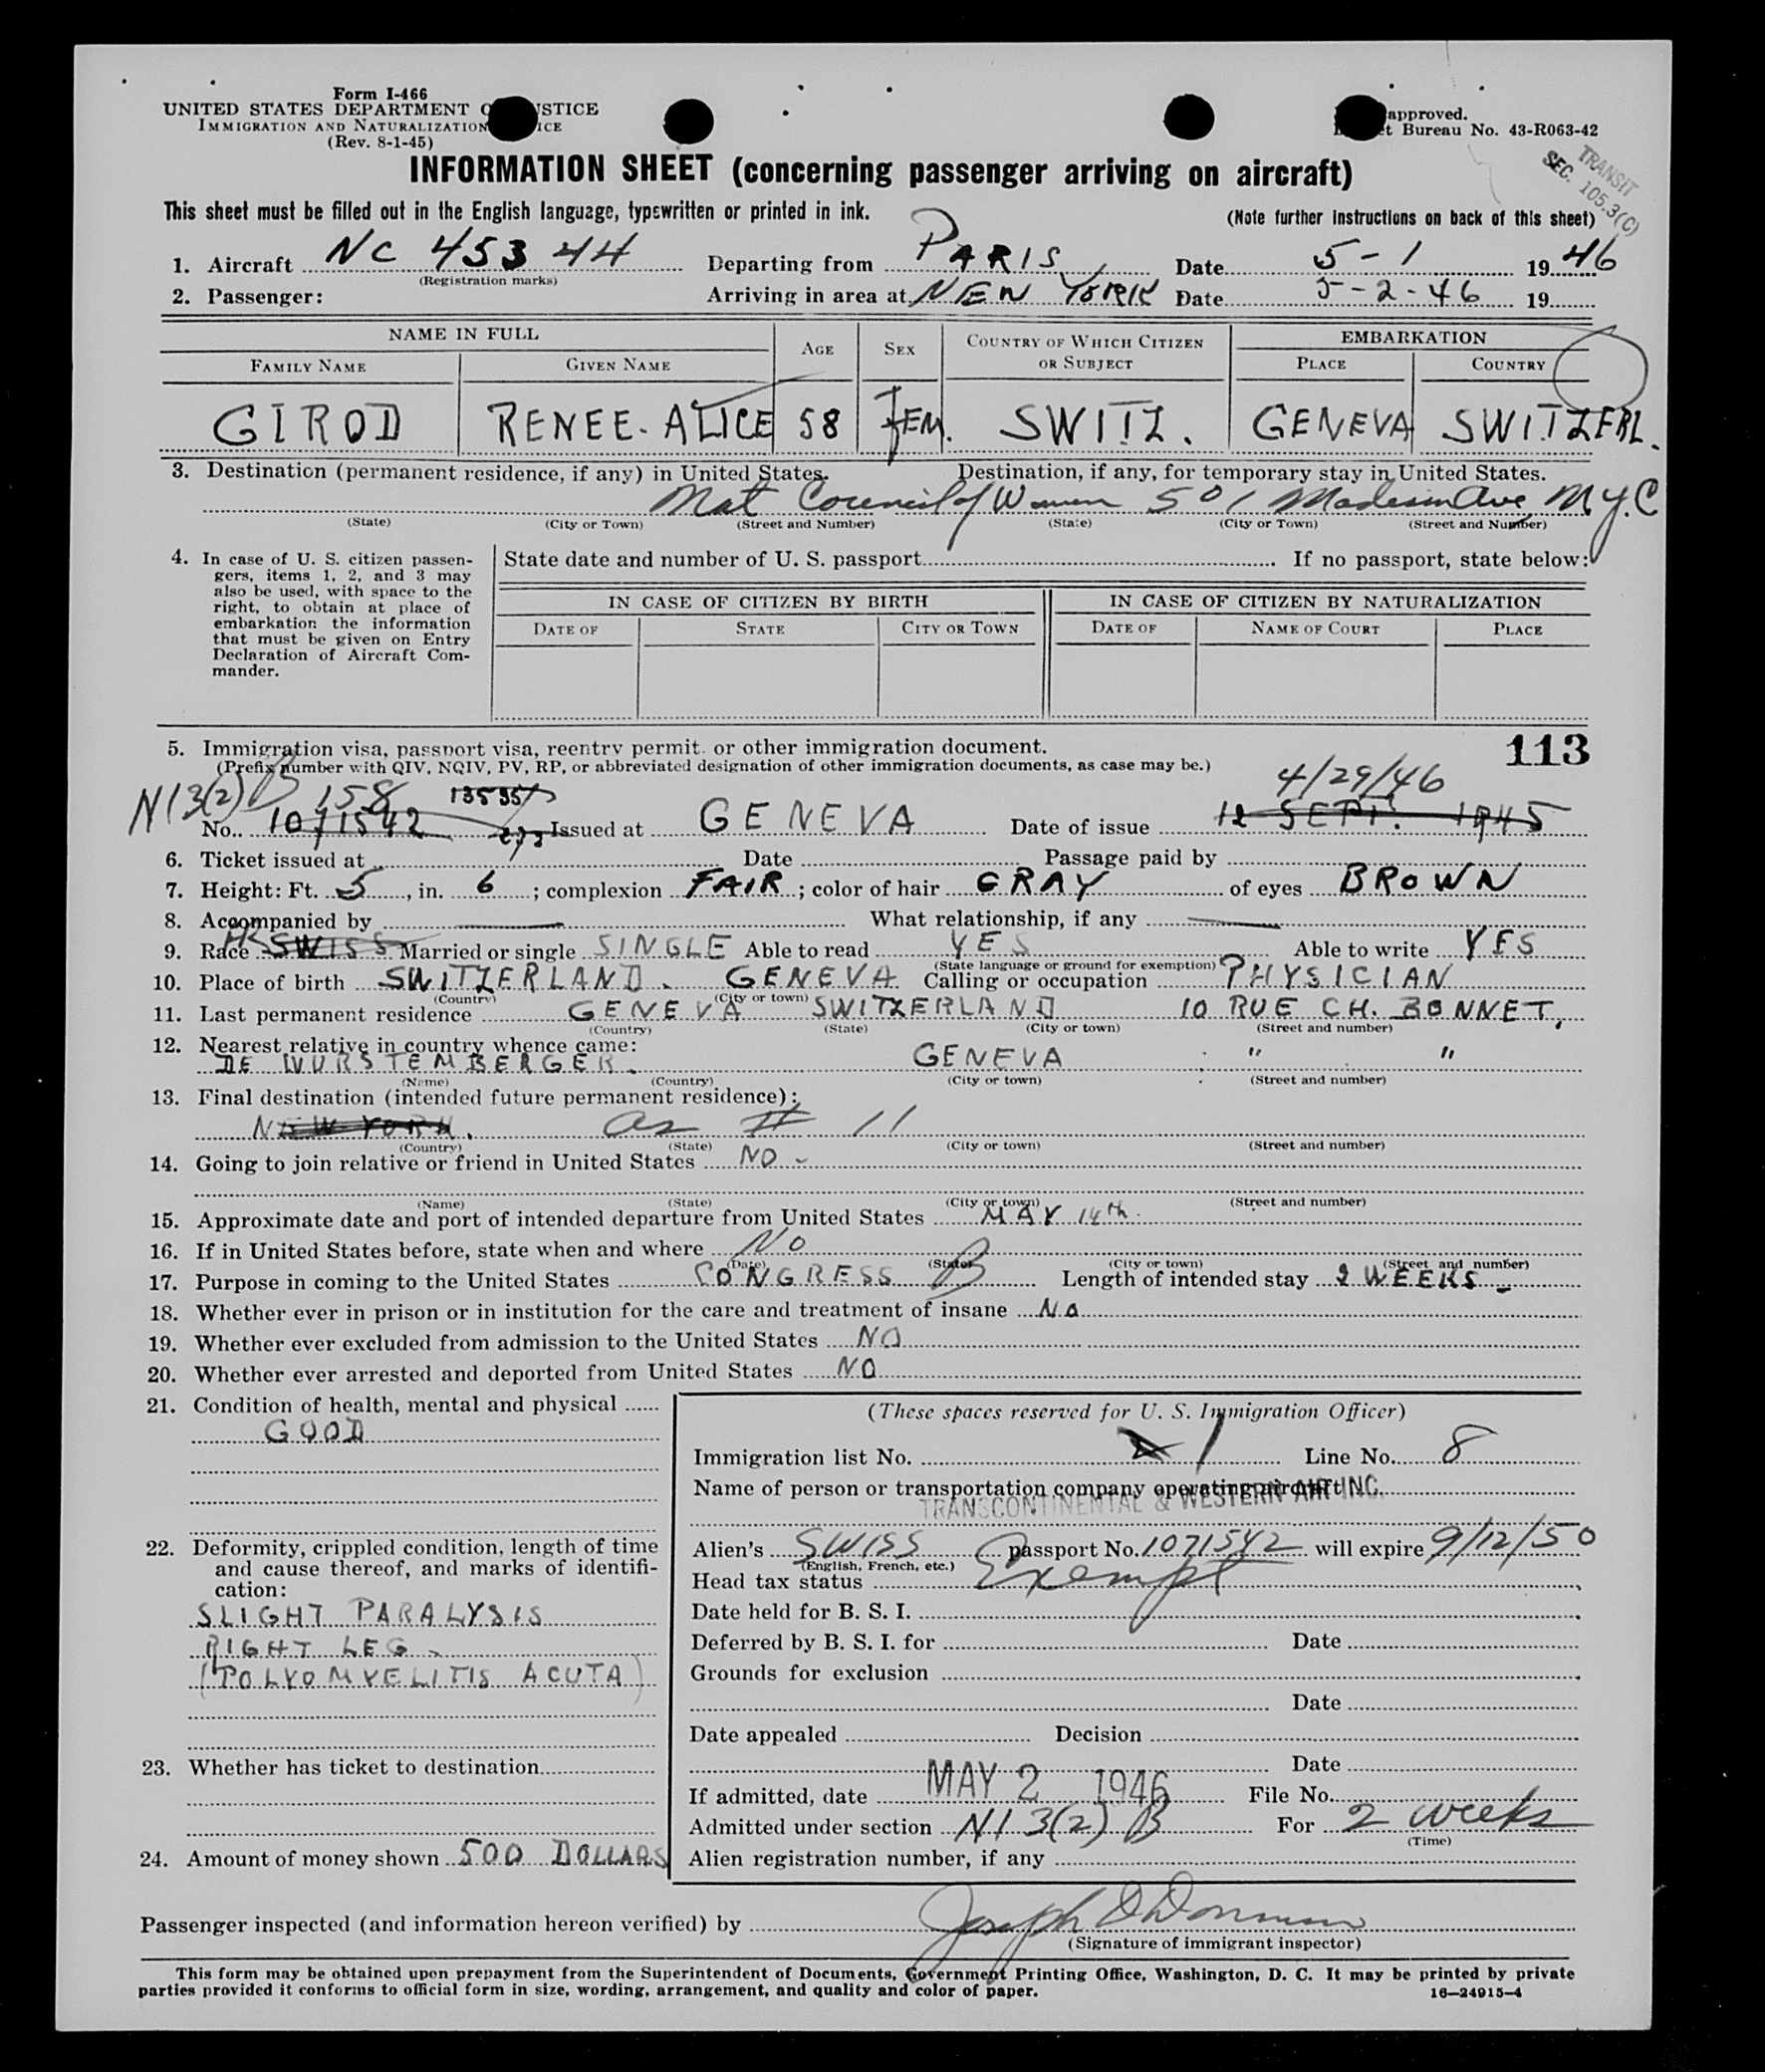 Form I-466
UNITED STATES DEPARTMENT O STICE
IMMIGRATION AND NATURALIZATION ICE
(Rev. 8-1-45)
approved.
t Bureau No. 43-R063-42
TRANSIT
SEC. 105.3(C)
INFORMATION SHEET (concerning passenger arriving on aircraft)
This sheet must be filled out in the English language, typewritten or printed in ink.
(Note further instructions on back of this sheet)
1. Aircraft NC 45344 Departing from PARIS Date 5-1 1946
(Registration marks)
2. Passenger: Arriving in area at NEW YORK Date 5-2-46 19
NAME IN FULL AGE SEX COUNTRY OF WHICH CITIZEN OR SUBJECT EMBARKATION
FAMILY NAME GIVEN NAME PLACE COUNTRY
GIROD RENEE-ALICE 58 FEM. SWITZ. GENEVA SWITZERL.
3. Destination (permanent residence, if any) in United States. Destination, if any, for temporary stay in United States.
Nat Council of Women 501 Madison Ave N.Y.C
(State) (City or Town) (Street and Number) (State) (City or Town) (Street and Number)
4. In case of U. S. citizen passen-
gers, items 1, 2, and 3 may
also be used, with space to the
right, to obtain at place of
embarkation the information
that must be given on Entry
Declaration of Aircraft Com-
mander.
State date and number of U. S. passport. If no passport, state below:
IN CASE OF CITIZEN BY BIRTH IN CASE OF CITIZEN BY NATURALIZATION
DATE OF STATE CITY OR TOWN DATE OF NAME OF COURT PLACE
5. Immigration visa, passport visa, reentry permit, or other immigration document. 113
(Prefix number with QIV, NQIV, PV, RP, or abbreviated designation of other immigration documents, as case may be.)
N13(2)B 158 4/29/46
No. 1071542 Issued at GENEVA Date of issue 12 SEPT. 1945
6. Ticket issued at Date Passage paid by
7. Height: Ft. 5, in. 6; complexion FAIR; color of hair GRAY of eyes BROWN
8. Accompanied by — What relationship, if any —
9. Race SWISS Married or single SINGLE Able to read YES Able to write YES
(State language or ground for exemption)
10. Place of birth SWITZERLAND. GENEVA. Calling or occupation PHYSICIAN
(Country) (City or town)
11. Last permanent residence GENEVA SWITZERLAND 10 RUE CH. BONNET,
(Country) (State) (City or town) (Street and number)
12. Nearest relative in country whence came:
DE WURSTEMBERGER. GENEVA " "
(Name) (Country) (City or town) (Street and number)
13. Final destination (intended future permanent residence):
NEW YORK. as # 11
(Country) (State) (City or town) (Street and number)
14. Going to join relative or friend in United States NO -
(Name) (State) (City or town) (Street and number)
15. Approximate date and port of intended departure from United States MAY 14th.
16. If in United States before, state when and where No
(Date) (State) (City or town) (Street and number)
17. Purpose in coming to the United States CONGRESS B Length of intended stay 2 WEEKS -
18. Whether ever in prison or in institution for the care and treatment of insane No
19. Whether ever excluded from admission to the United States NO
20. Whether ever arrested and deported from United States NO
21. Condition of health, mental and physical
GOOD
22. Deformity, crippled condition, length of time
and cause thereof, and marks of identifi-
cation:
SLIGHT PARALYSIS
RIGHT LEG -
(POLYOMYELITIS ACUTA)
23. Whether has ticket to destination
24. Amount of money shown 500 DOLLARS
(These spaces reserved for U. S. Immigration Officer)
Immigration list No. 1 Line No. 8
Name of person or transportation company operating aircraft
TRANSCONTINENTAL & WESTERN AIR INC.
Alien's SWISS passport No. 1071542 will expire 9/12/50
(English, French, etc.)
Head tax status Exempt
Date held for B. S. I.
Deferred by B. S. I. for Date
Grounds for exclusion
Date
Date appealed Decision
Date
If admitted, date MAY 2 1946 File No.
Admitted under section N13(2) B For 2 weeks
(Time)
Alien registration number, if any
Passenger inspected (and information hereon verified) by Joseph
(Signature of immigrant inspector)
This form may be obtained upon prepayment from the Superintendent of Documents, Government Printing Office, Washington, D. C. It may be printed by private
parties provided it conforms to official form in size, wording, arrangement, and quality and color of paper. 16—24915-4